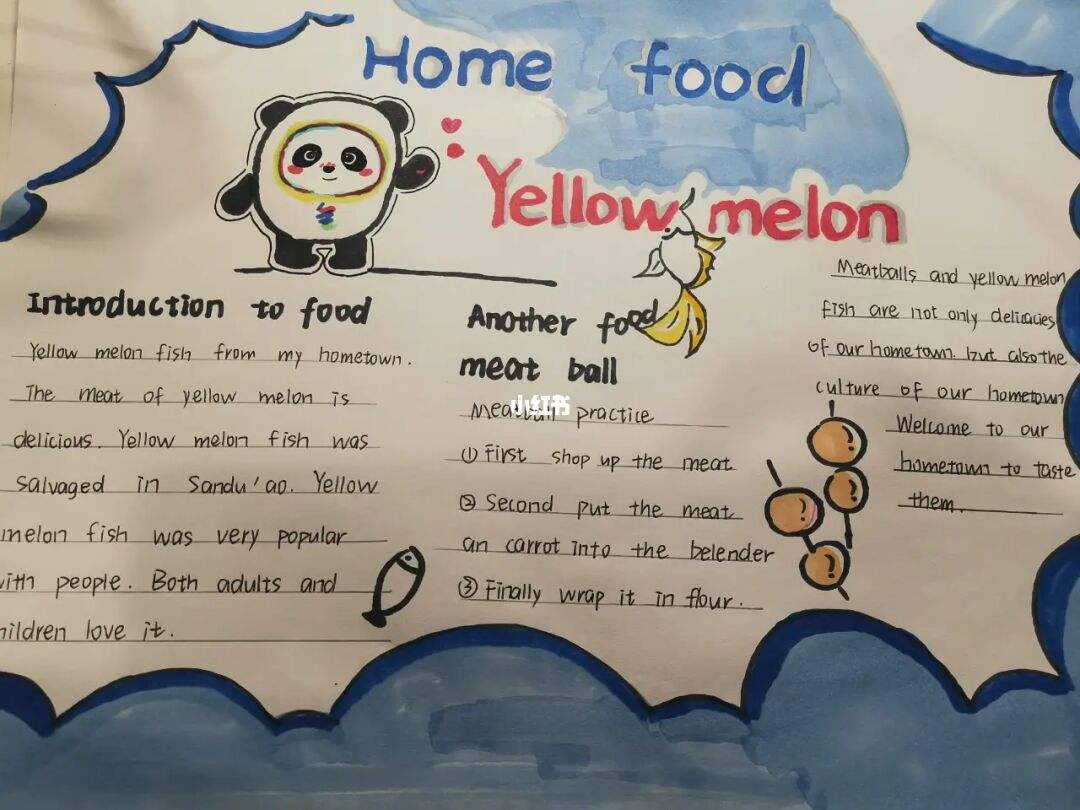 Home food
Yellow melon
Introduction to food
Yellow melon fish from my hometown.
The meat of yellow melon is
delicious. Yellow melon fish was
salvaged in Sandu'ao. Yellow
melon fish was very popular
with people. Both adults and
hildren love it.
Another food
meat ball
Meatball practice
① First shop up the meat
② Second put the meat
an carrot into the belender
③ Finally wrap it in flour.
小红书
Meatballs and yellow melon
fish are not only delicacies
of our hometown. but also the
culture of our hometown
Welcome to our
hometown to taste
them.